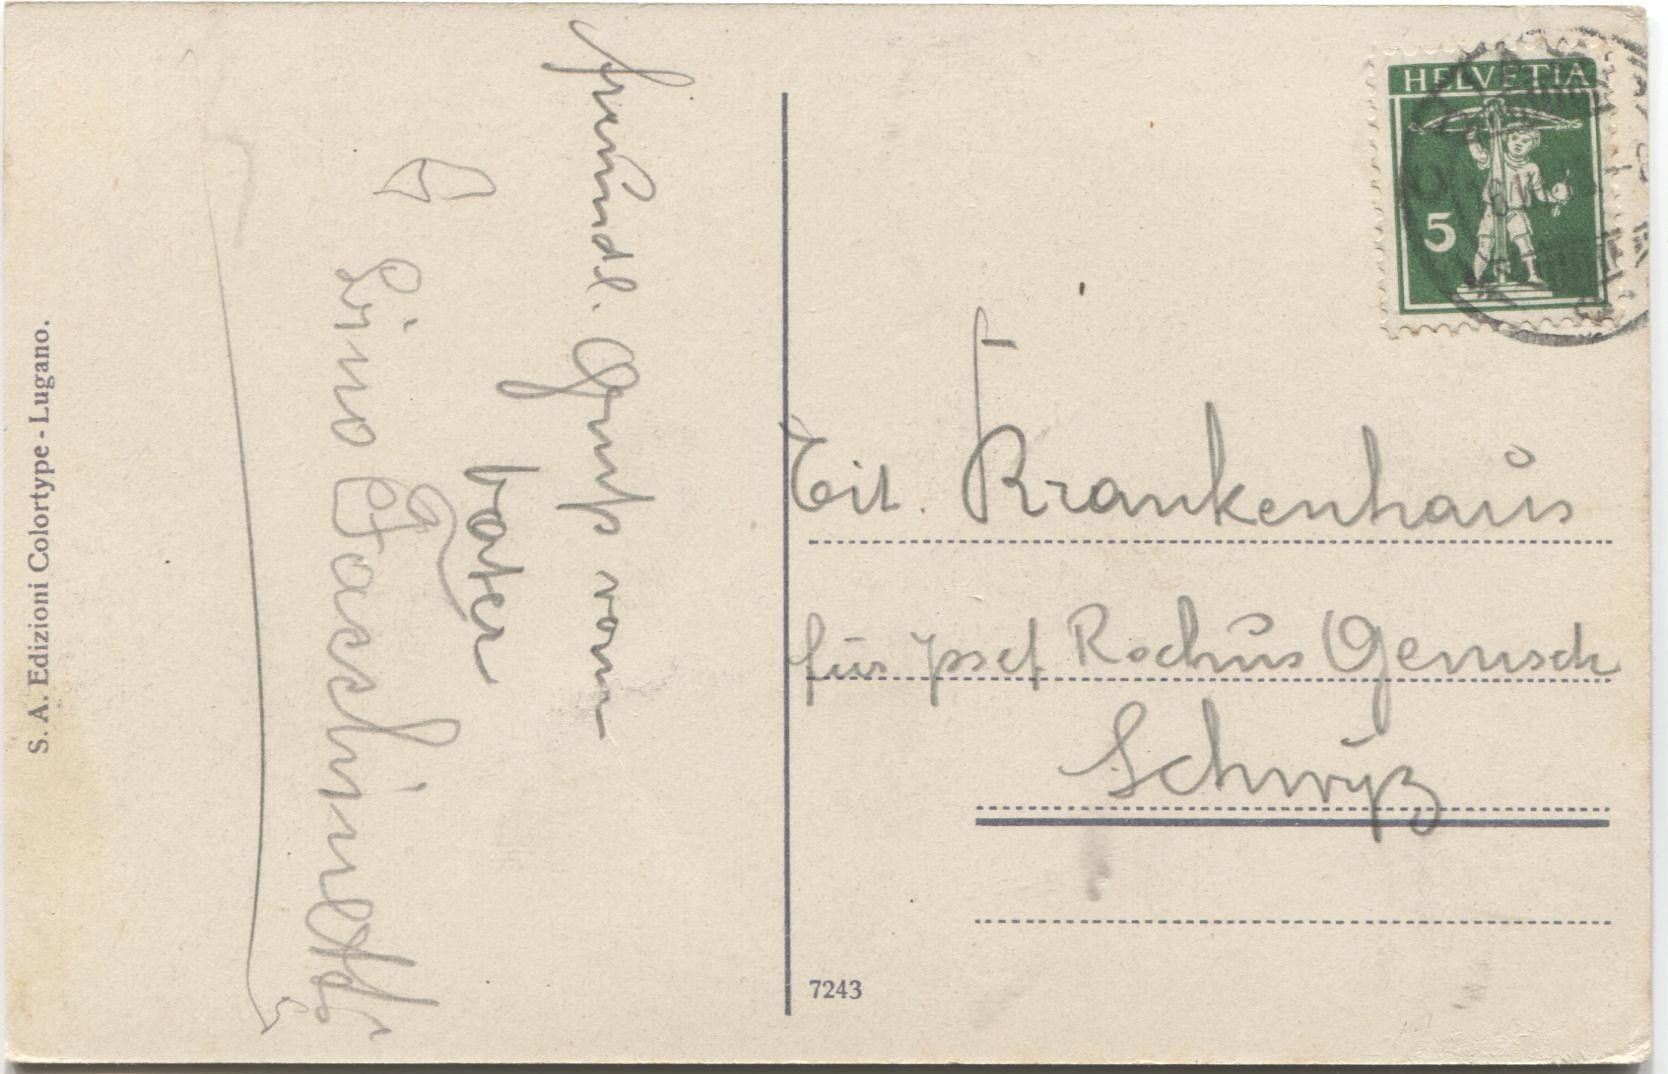 S. A. Edizioni Colortype - Lugano.
freundl. Gruß vom
Vater
Lino
HELVETIA
5
Tit. Krankenhaus
für Josef Rochus Gemsch
Schwyz
7243